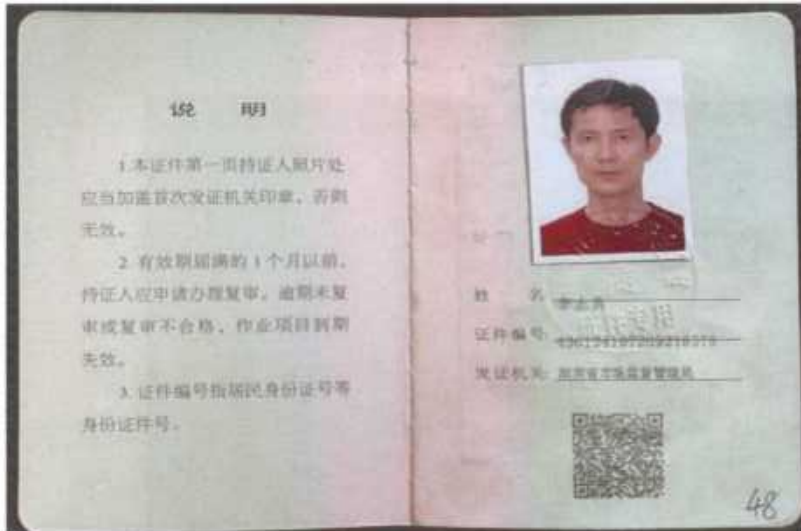 说 明
1.本证件第一页持证人照片处
应当加盖首次发证机关印章，否则
无效。
2.有效期届满的1个月以前，
持证人应申请办理复审。逾期未复
审或复审不合格，作业项目到期
失效。
3.证件编号指居民身份证号等
身份证件号。
姓 名
证件编号
发证机关 市场监督管理局
48